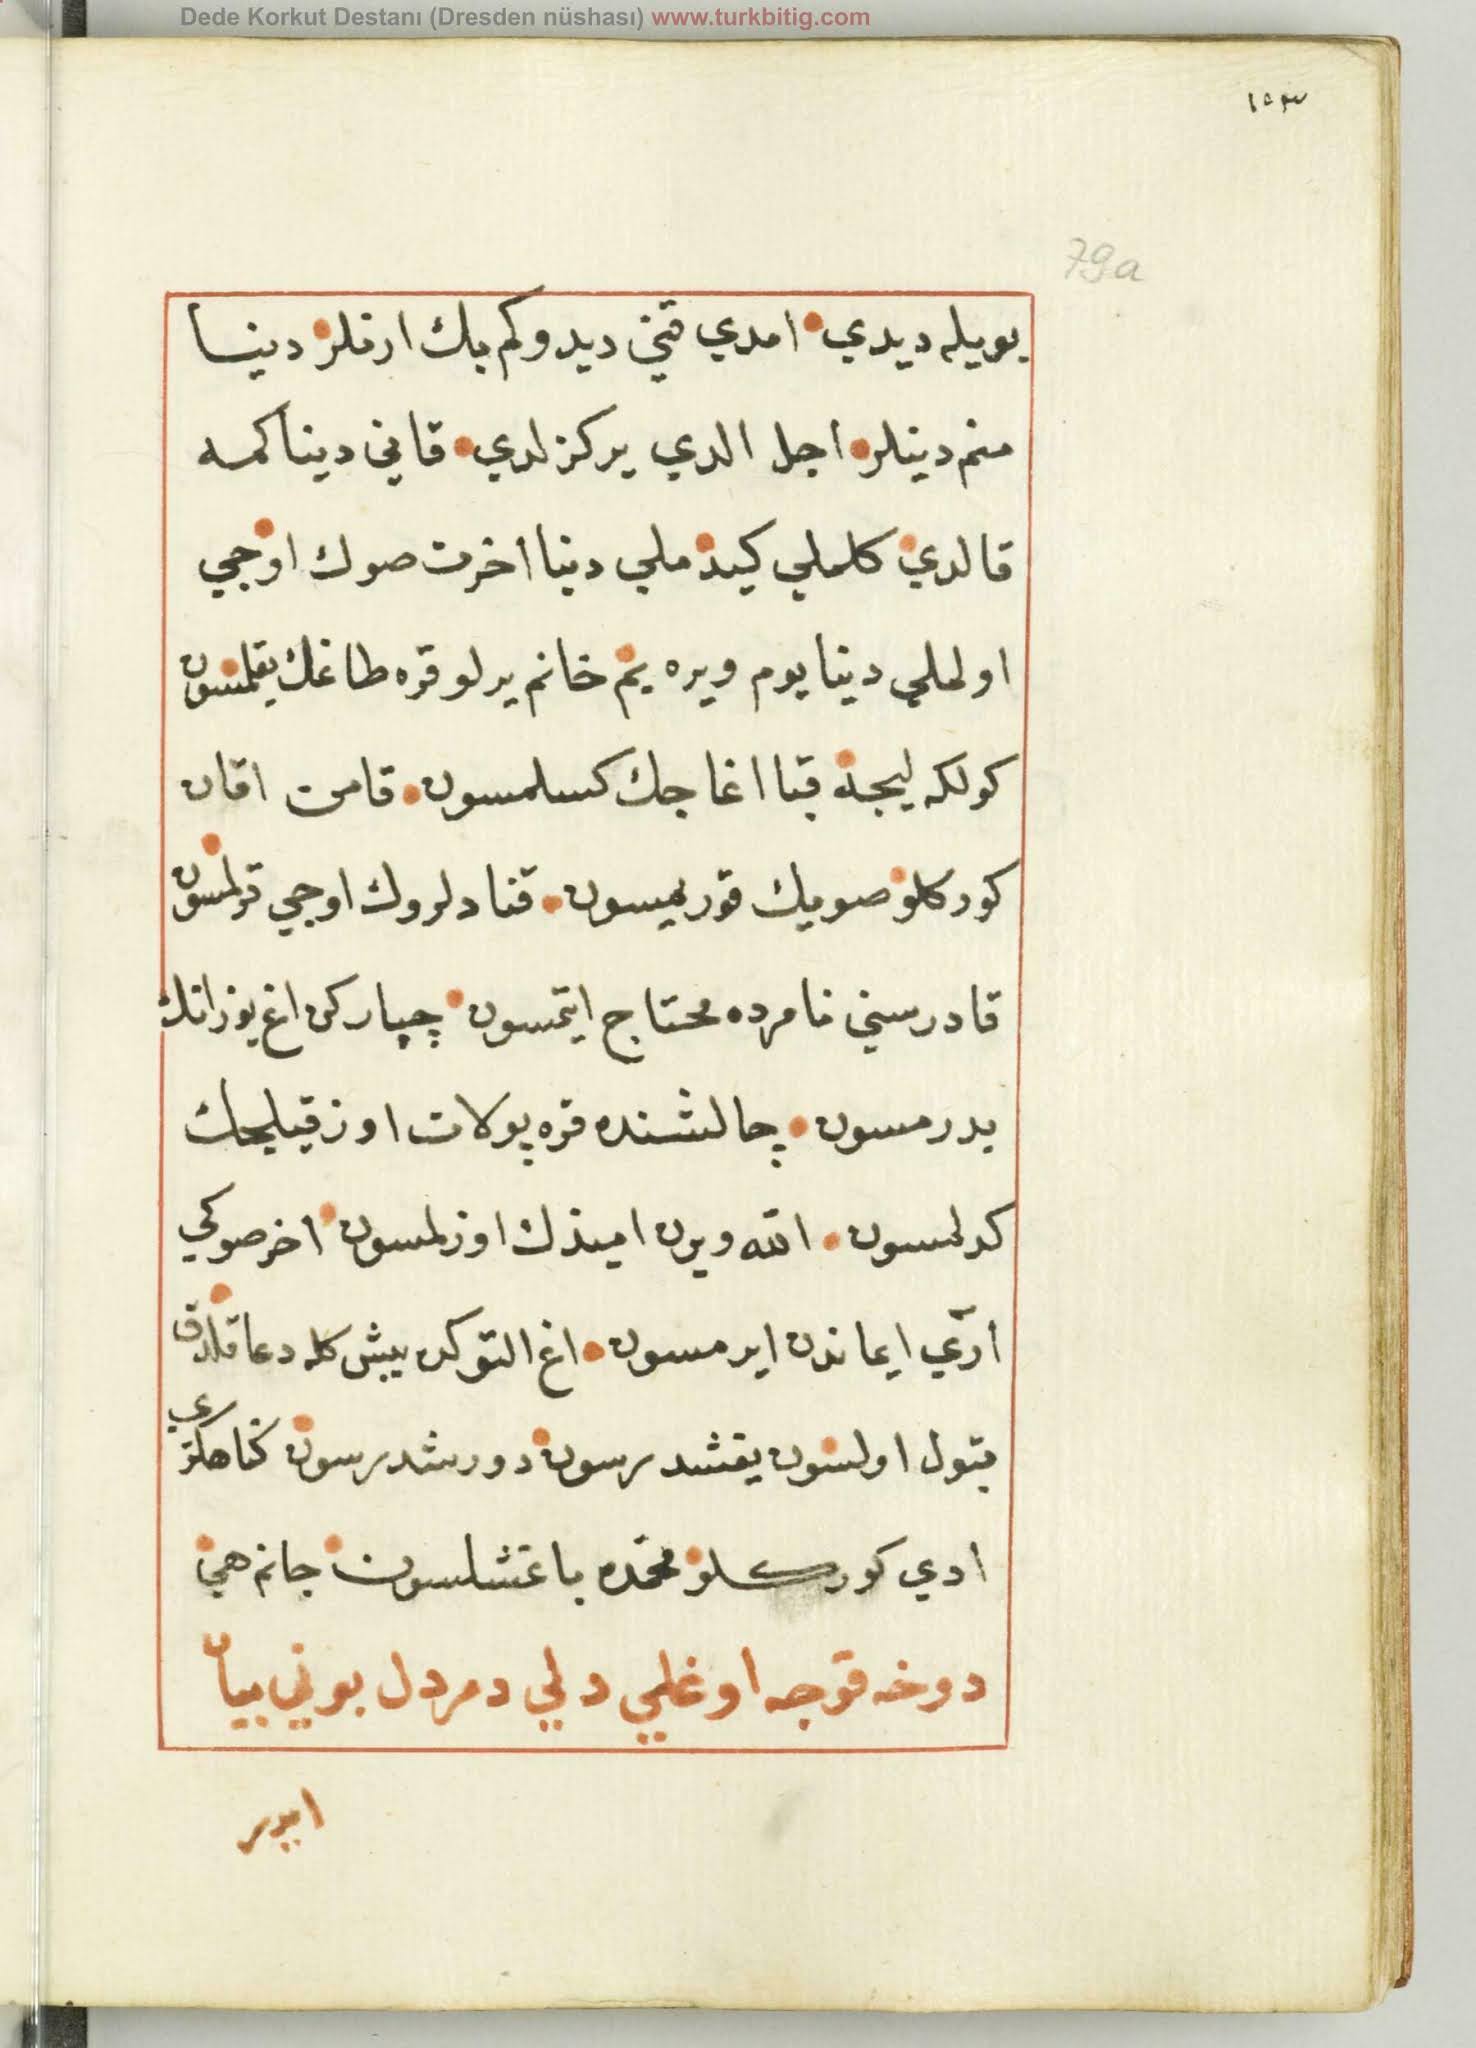 Dede Korkut Destanı (Dresden nüshası) www.turkbitig.com
١٥٣
79a
بويله ديدي امدي قنى ديدوكم بك ارنلر دنيا
منم دينلر اجل الدي ير كزلدي قانى دنيا كمه
قالدي كلملي كيدملي دنيا اخرت صوك اوجي
اولملي دنيا يوم ويره يم خانم يرلو قره طاغك يقلمسون
كولكه ليجه قبا اغاجك كسلمسون قامن اقان
كوركلو صويك قوريمسون قنادلروك اوجي قرلمسون
قادر سني نامرده محتاج ايتمسون چپاركن اغ بوز اتك
بدرمسون چالشنده قره پولات اوز قيليجك
كدلمسون الله ويرن اميدك اوزلمسون اخر صوكي
ارى ايماندن ايرمسون اغ النوكده بيش كلمه دعا قلدق
قبول اولسون يغشدرسون دورشدرسون كناهكزي
ادي كوركلو محمده باغشلسون خانم هى
دوخه قوجه اوغلي دلي دمردل بويني بيان
ايدر